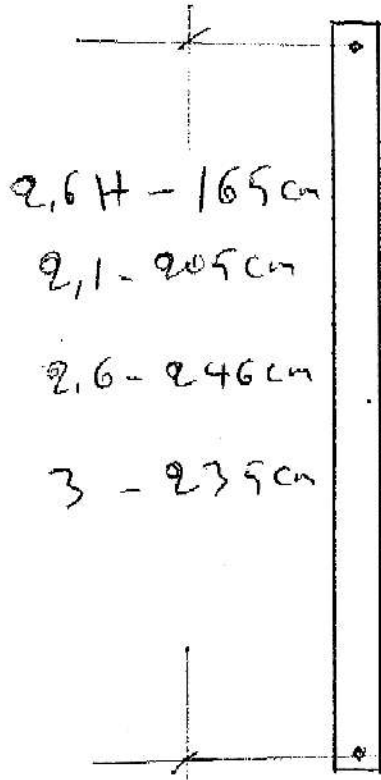 2,6 H - 165cm
2,1 - 205cm
2,6 - 246cm
3 - 235cm